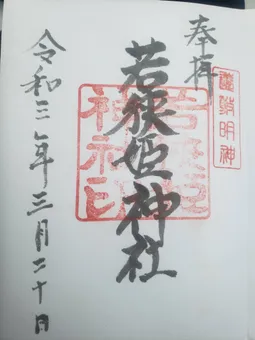 遠敷明神
奉拝
若狭姫神社
若狭姫
神社印
令和三年三月二十日